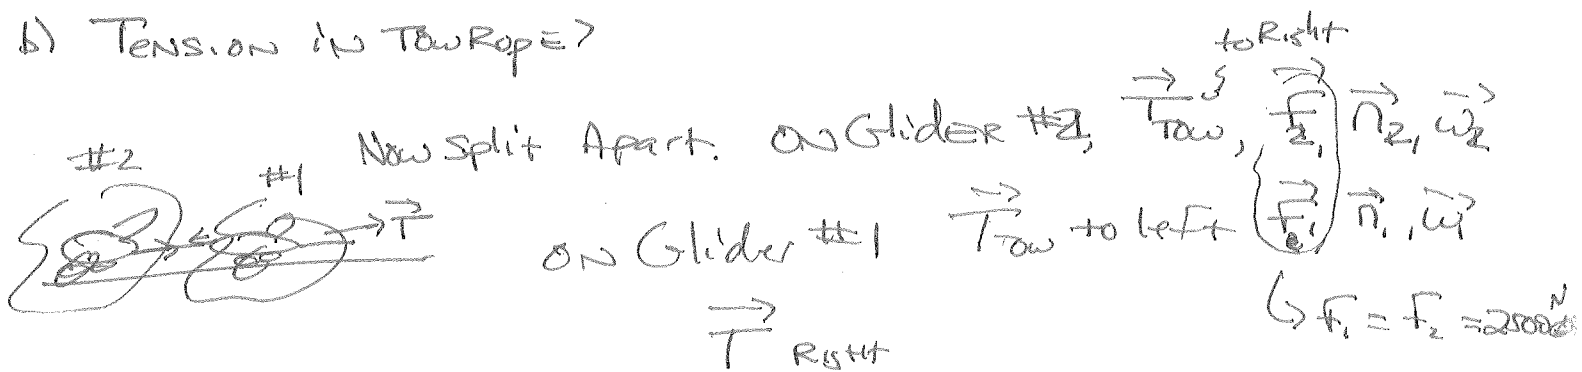 b) TENSION IN TOWROPE?
to Right
Now split Apart. ON GliDER #2, T⃗_TOW, F⃗_2, n⃗_2, w⃗_2
#2 #1
T⃗
ON Glider #1 T⃗_TOW to left F⃗_1, n⃗_1, w⃗_1
↳ F_1 = F_2 = 2500 N
T⃗ RIGHT